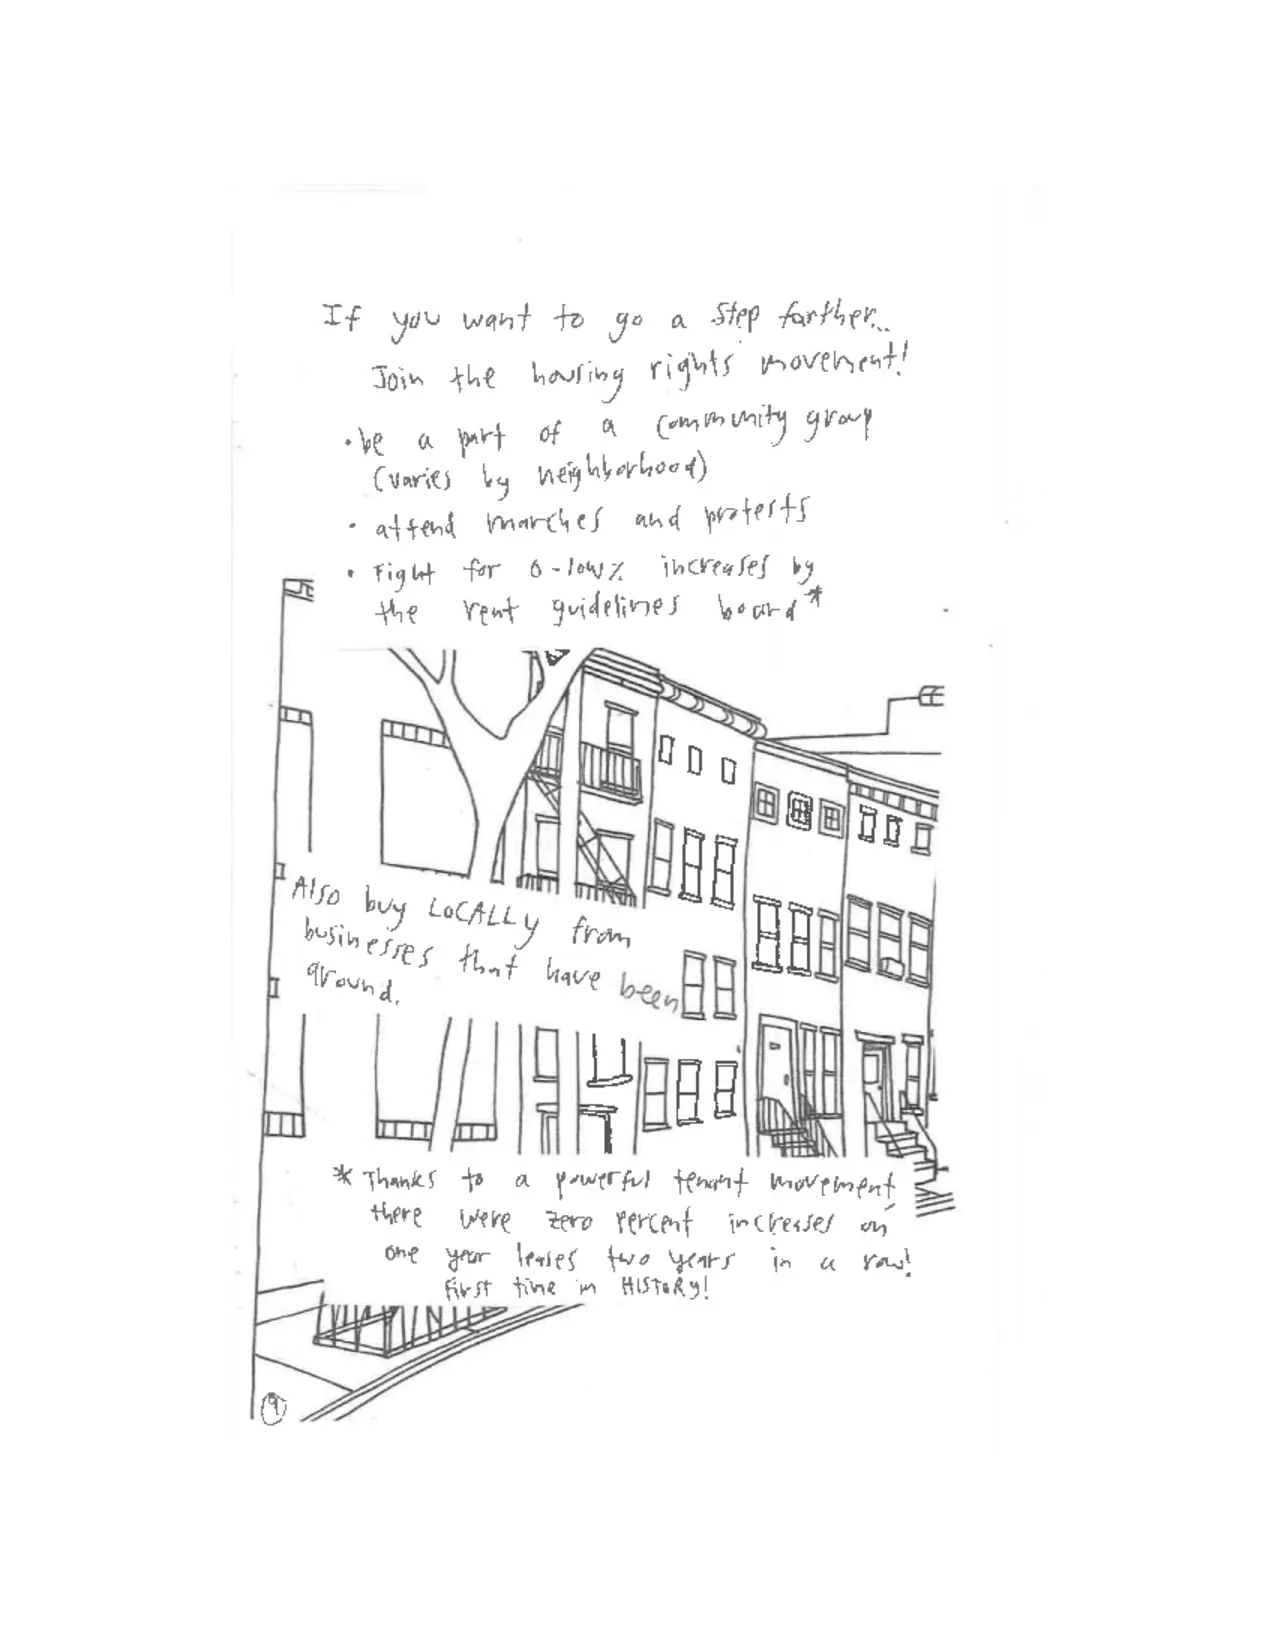 If you want to go a step farther...
Join the housing rights movement!
• be a part of a community group
(varies by neighborhood)
• attend marches and protests
• Fight for 0-low% increases by
the rent guidelines board*
Also buy LOCALLY from
businesses that have been
around.
* Thanks to a powerful tenant movement,
there were zero percent increases on
one year leases two years in a row!
First time in HISTORY!
9